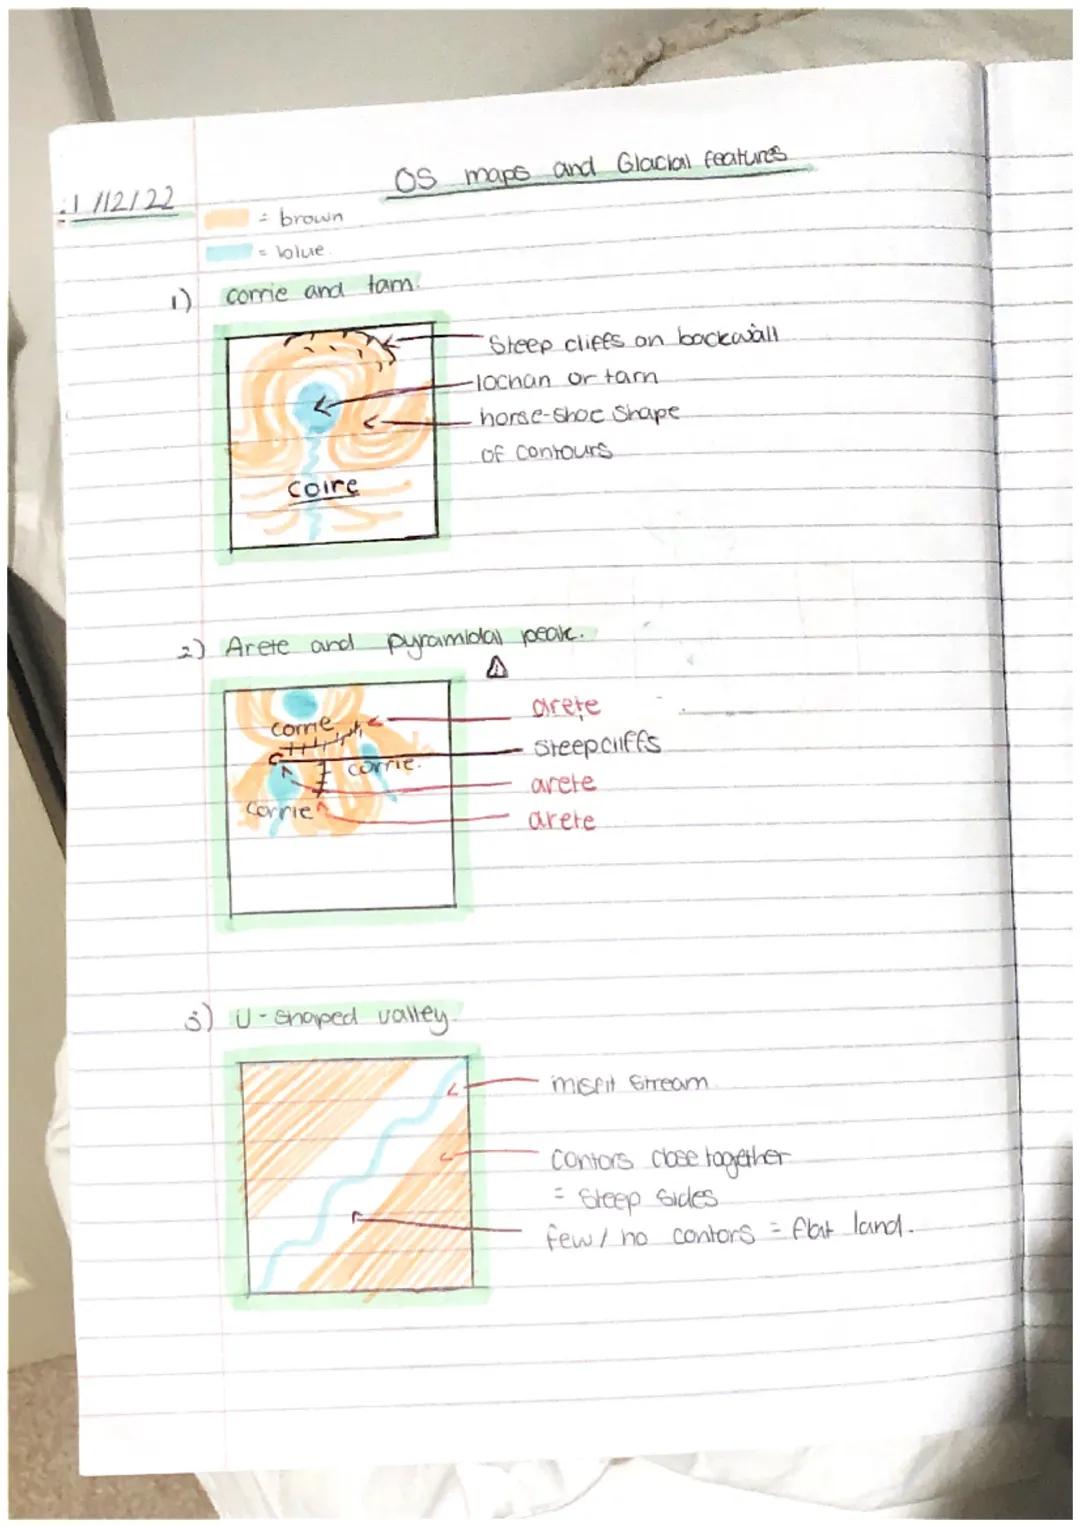 OS maps and Glacial features
1/12/22
= brown
= blue.
1) corrie and tarn.
Steep cliffs on backwall
lochan or tarn
horse-shoe shape
of contours
coire
2) Arete and pyramidal peak.
arete
corrie
steep cliffs
corrie.
arete
corrie
arete
3) U-shaped valley.
misfit stream
contors close together
= steep sides
few / no contors = flat land.